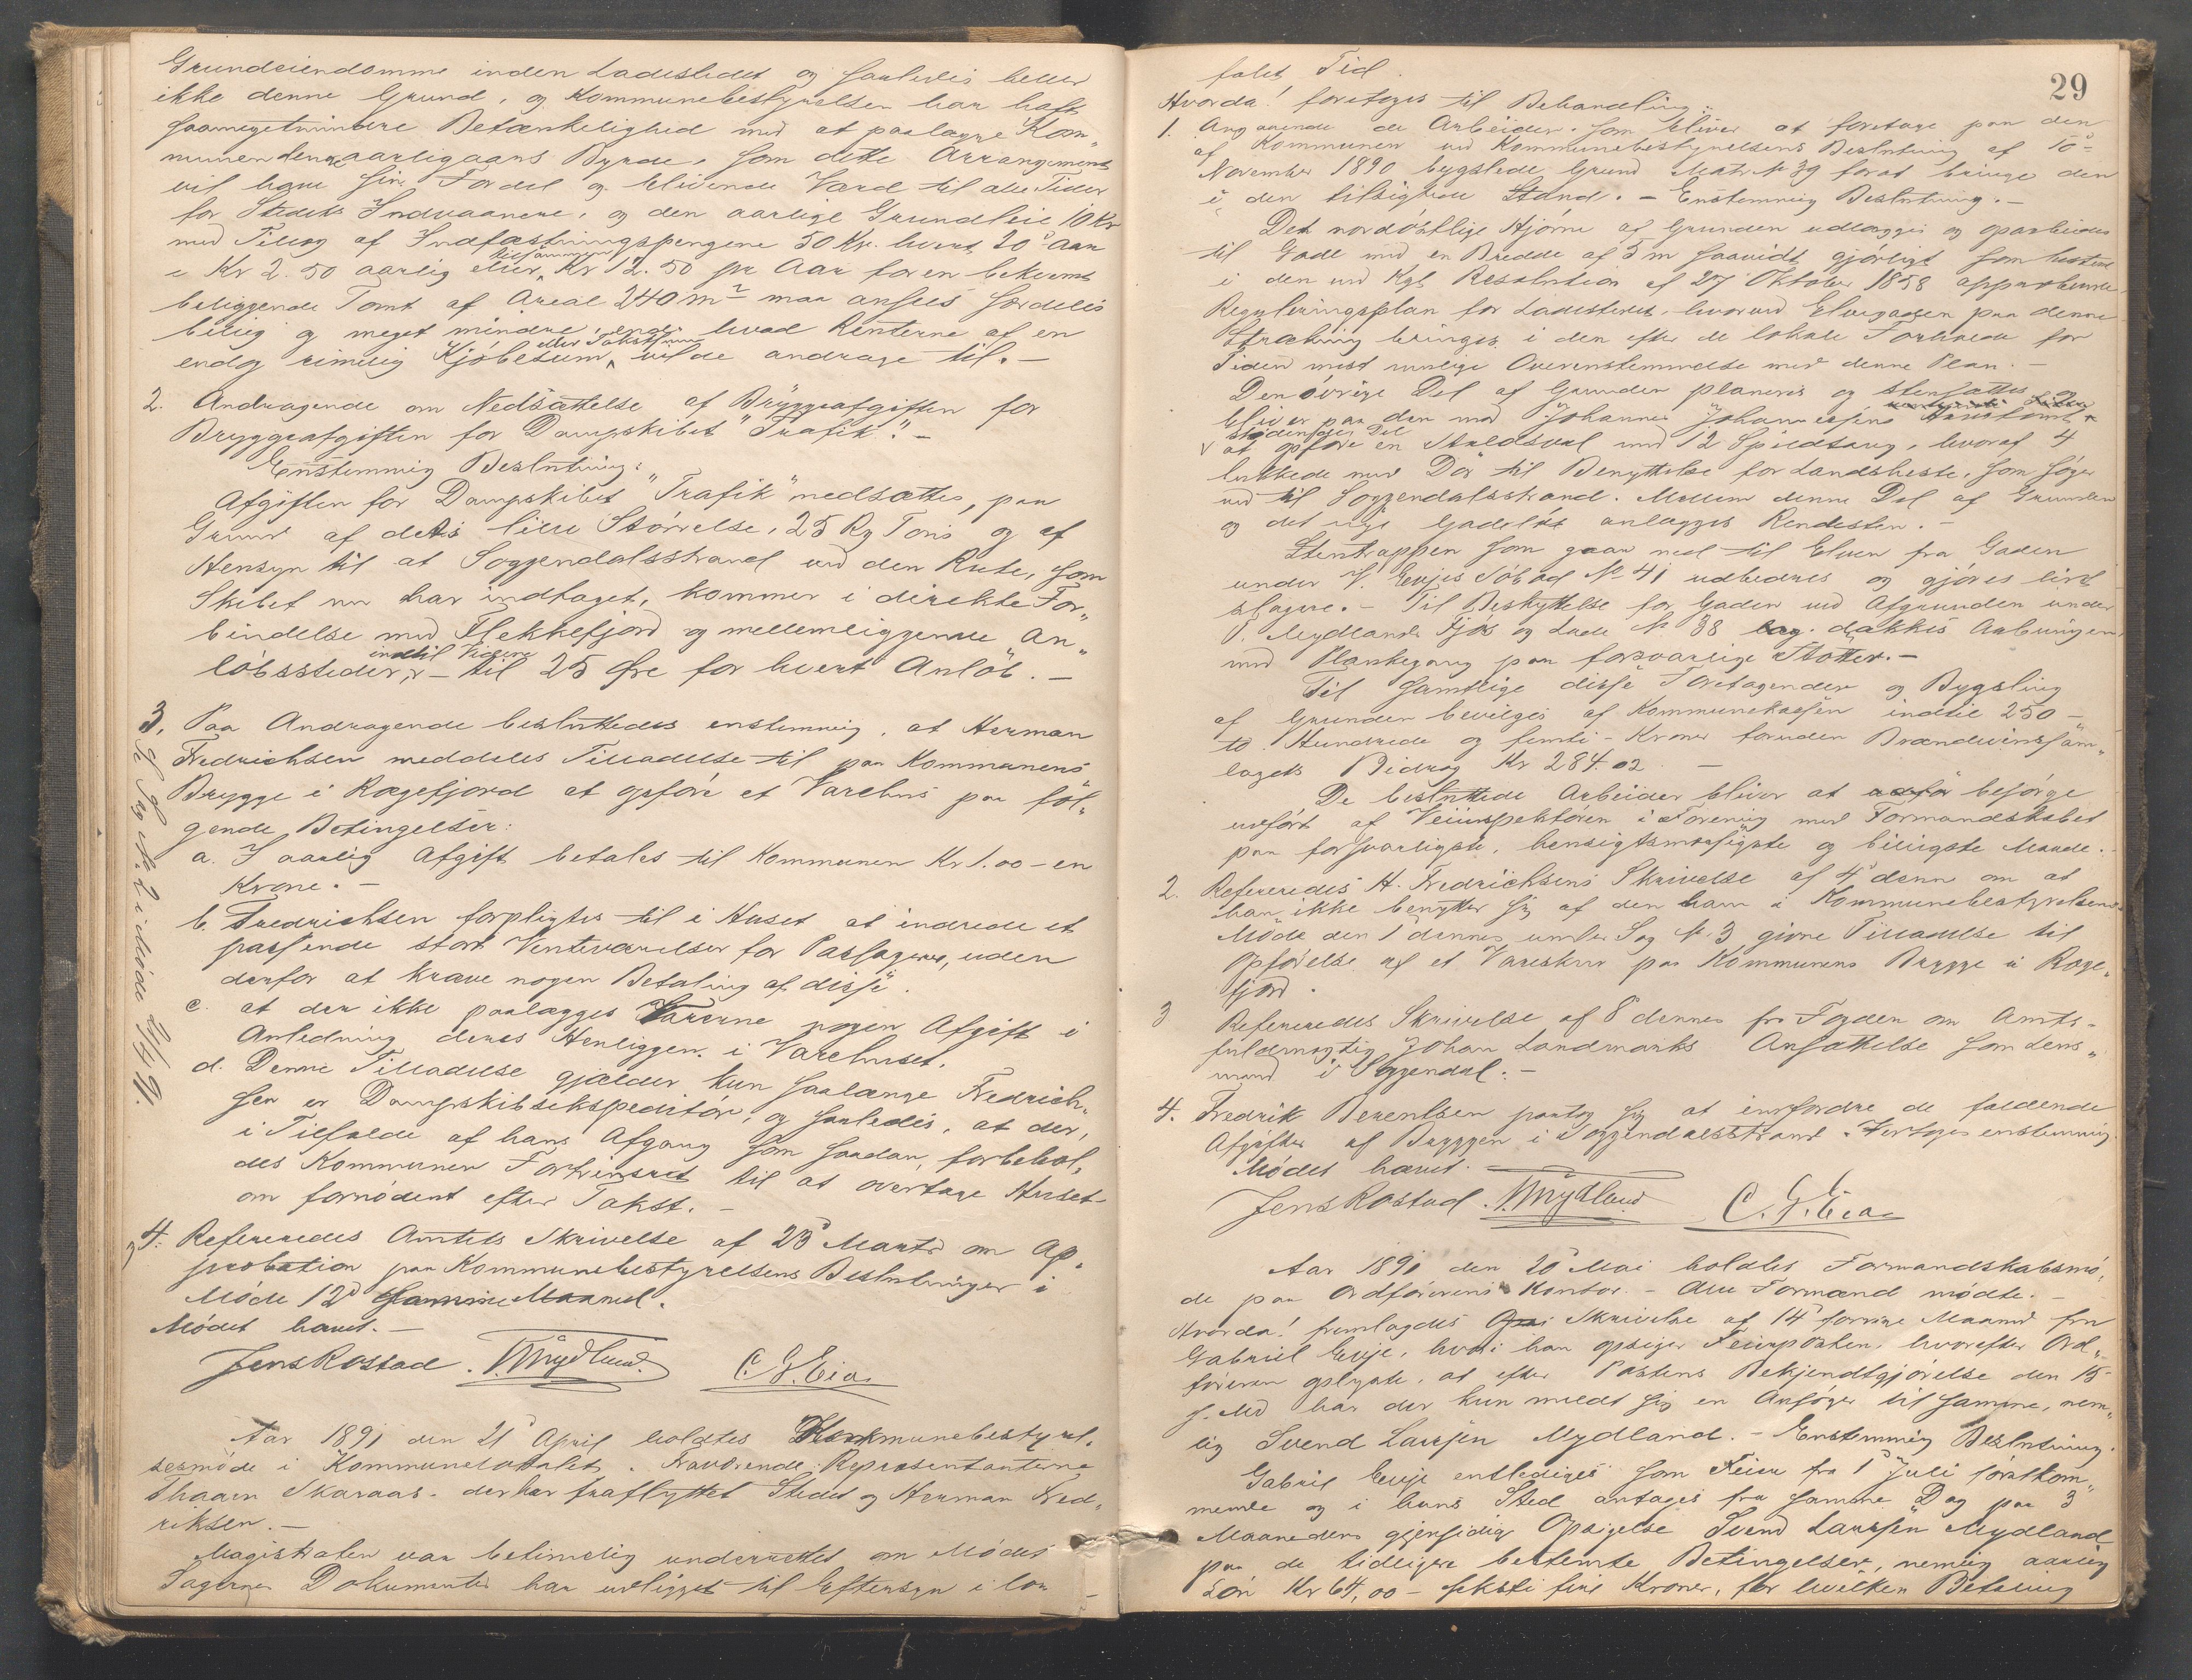 Grundeiendomme inden Ladestedet og saaledes heller
ikke denne Grund, og Kommunebestyrelsen har haft
saameget mindre Betænkelighed med at paalægge Kom-
munen denne aarligaars Byrde, som dette Arrangement
vil have sin Fordel og blivende Værd til alle Tider
for Stedets Indvaanere, og den aarlige Grundleie 10 Kr
med Tillæg af Indfæstningspengene 50 Kr. hvert 20de Aar
a Kr 2.50 aarlig eller tilsammen Kr 12.50 pr Aar for en bekvemt
beliggende Tomt af Areal 240 m² maa ansees særdeles
billig og meget mindre, end hvad Renterne af en
endog rimelig Kjøbesum eller Takstsum vilde andrage til. —
2. Andragende om Nedsættelse af Bryggeafgiften for
Bryggeafgiften for Dampskibet "Trafik". —
Enstemmig Beslutning:
Afgiften for Dampskibet "Trafik" nedsættes, paa
Grund af dets lille Størrelse, 25 Rg Tons og af
Hensyn til at Soggendalsstrand ved den Rute, som
Skibet nu har indtaget, kommer i direkte For-
bindelse med Flekkefjord og mellemliggende An-
løbssteder, indtil Videre — til 25 Øre for hvert Anløb. —
3. Paa Andragende besluttedes enstemmig, at Herman
Fredrichsen meddeles Tilladelse til paa Kommunens
Brygge i Rægefjord at opføre et Varehus paa føl-
gende Betingelser:
a. I aarlig Afgift betales til Kommunen Kr 1.00 — en
Krone. —
b. Fredrichsen forpligtes til i Huset at indrede et
passende stort Venteværelse for Passagerer, uden
derfor at kræve nogen Betaling af disse.
c. at der ikke paalægges Varerne nogen Afgift i
Anledning deres Henliggen i Varehuset.
d. Denne Tilladelse gjælder kun saalænge Fredrich-
sen er Dampskibsekspeditør, og saaledes, at der,
i Tilfælde af hans Afgang som saadan, forbehol-
des Kommunen Fortrinsret til at overtage Huset
om fornødent efter Takst. —
Se Sag No 2 i Møde 21/4 91.
4. Refereredes Amtets Skrivelse af 23de Marts om Ap-
probation paa Kommunebestyrelsens Beslutninger i
Møde 12te samme Maaned.
Mødet hævet. —
Jens Rostad. Mydland. C. G. Eia
Aar 1891 den 21de April holdtes Kommunebestyrel-
sesmøde i Kommunelokalet. Fraværende: Repræsentanterne
Thaaen Skaraas. der har fraflyttet Stedet og Herman Fred-
riksen. —
Magistraten var betimelig underrettet om Mødet
Sagernes Dokumenter har udligget til Eftersyn i lov-
29
falet Tid.
Hvorda! foretoges til Behandling:
1. Angaaende de Arbeider. som bliver at foretage paa den
af Kommunen ved Kommunebestyrelsens Beslutning af 10de
November 1890 bygslede Grund Matr No 39 forat bringe den
i den tilsigtede Stand. — Enstemmig Beslutning. —
Det nordøstlige Hjørne af Grunden udlægges og oparbeides
til Gade med en Bredde af 5 m saavidt gjørligt som bestemt
i den ved Kgl Resolution af 27 Oktober 1858 approberede
Reguleringsplan for Ladestedet, hvorved Elvegaden paa denne
Strækning bringes i den efter de lokale Forholde for
Tiden mest mulige Overensstemmelse med denne Plan. —
Den øvrige Del af Grunden planeres og stensættes og
bliver paa den mod Johannes Johannessens Hustomt
stødende Del at opføre en Staldsval med 12 Spiltaug, hvoraf 4
lukkede med Dør til Benyttelse for Landsheste, som søger
ned til Soggendalsstrand. Mellem denne Del af Grunden
og det nye Gadeløb anlægges Rendesten. —
Stentrappen som gaar ned til Elven fra Gaden
under V. Evjes Søbod No 41 udbedres og gjøres lidt
slagere. — Til Beskyttelse for Gaden ved Afgrunden under
V. Mydlands Fjøs og Lade No 38 dækkes Aabningen
med Plankegang paa forsvarlige Støtter. —
Til samtlige disse Foretagender og Bygsling
af Grunden bevilges af Kommunekassen indtil 250 —
to Hundrede og femti — Kroner foruden Brændevinssam-
lagets Bidrag Kr 284.02. —
De besluttede Arbeider bliver at besørge
udført af Veiinspektøren i Forening med Formandskabet
paa forsvarligste, hensigtsmæssigste og billigste Maade.
2. Refereredes H. Fredrichsens Skrivelse af 4de denne om at
han ikke benytter sig af den ham i Kommunebestyrelsens
Møde den 1 dennes under Sag No 3 givne Tilladelse til
Opførelse af et Vareskur paa Kommunens Brygge i Ræge-
fjord.
3 Refereredes Skrivelse af 8de dennes fra Fogden om Amts-
fuldmægtig Johan Landmarks Ansættelse som Lens-
mand i Soggendal. —
4. Fredrik Berentsen paatog sig at indfordre de faldende
Afgifter af Bryggen i Soggendalsstrand. Vedtoges enstemmig.
Mødet hævet. —
Jens Rostad. Mydland C. G. Eia
Aar 1891 den 20de Mai holdtes Formandskabsmø-
de paa Ordførerens Kontor. — Alle Formænd mødte. —
Hvorda! fremlagdes Skrivelse af 14de forrige Maaned fra
Gabriel Evje, hvori han opsiger Feierposten, hvorefter Ord-
føreren oplyste, at efter Postens Bekjendtgjørelse den 15
s. Md har der kun meldt sig en Ansøger til samme, nem-
lig Svend Larssen Mydland. — Enstemmig Beslutning.
Gabriel Evje entlediges som Feier fra 1 Juli førstkom-
mende og i hans Sted antages fra samme Dag paa 3
Maaneders gjensidig Opsigelse Svend Larssen Mydland
paa de tidligere bestemte Betingelser, nemlig aarlig
Løn Kr 64,00 — seksti fire Kroner, for hvilken Betaling